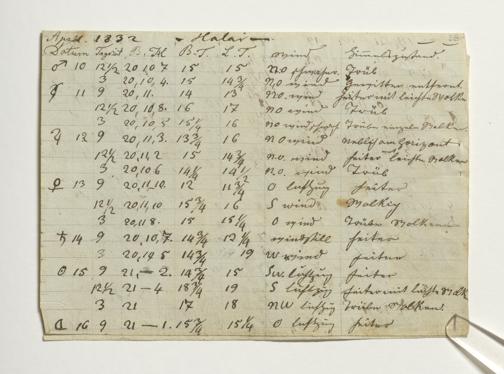 April. 1832 - Halai -
Datum Tagszeit B. St. B. T. L. T. wind Himmelszustand.
♂ 10 12 1/2 20,10,7 15 15 NO schwacher. Trüb
3 20,10,4. 15 14 3/4 NO wind entfernt.
☿ 11 9 20,11. 14 13 NO wind heiter mit leichten Wolken
12 1/2 20,10,8. 16 17 NO wind Trüb
3 20,10,5 15 1/4 16 NO wind Trübe einzeln Wolken.
♃ 12 9 20,11,3. 13 3/4 16 NO wind neblich am Horizont
12 1/2 20,11,2 15 14 3/4 NO. wind heiter leichte Wolken
3 20,10,6 14 1/4 14 1/2 NO. wind Trüb
♀ 13 9 20,11,10. 12 11 3/4 O luftzug heiter
12 1/2 20,11,10 15 3/4 16 S wind Wolkig
3 20,11,8. 15 15 1/4 O wind Trübe Wolken
♄ 14 9 20,10,7. 14 3/4 12 1/4 windstill heiter
3 20,10,5 14 3/4 19 W wind heiter
☉ 15 9 21,— 2. 14 3/4 15 SW. luftzug heiter
12 1/2 21 — 4 18 3/4 19 S luftzug heiter mit leichte Wolk
3 21 17 18 NW luftzug Trübe Wolken.
☾ 16 9 21 — 1. 15 3/4 15 1/4 O luftzug heiter